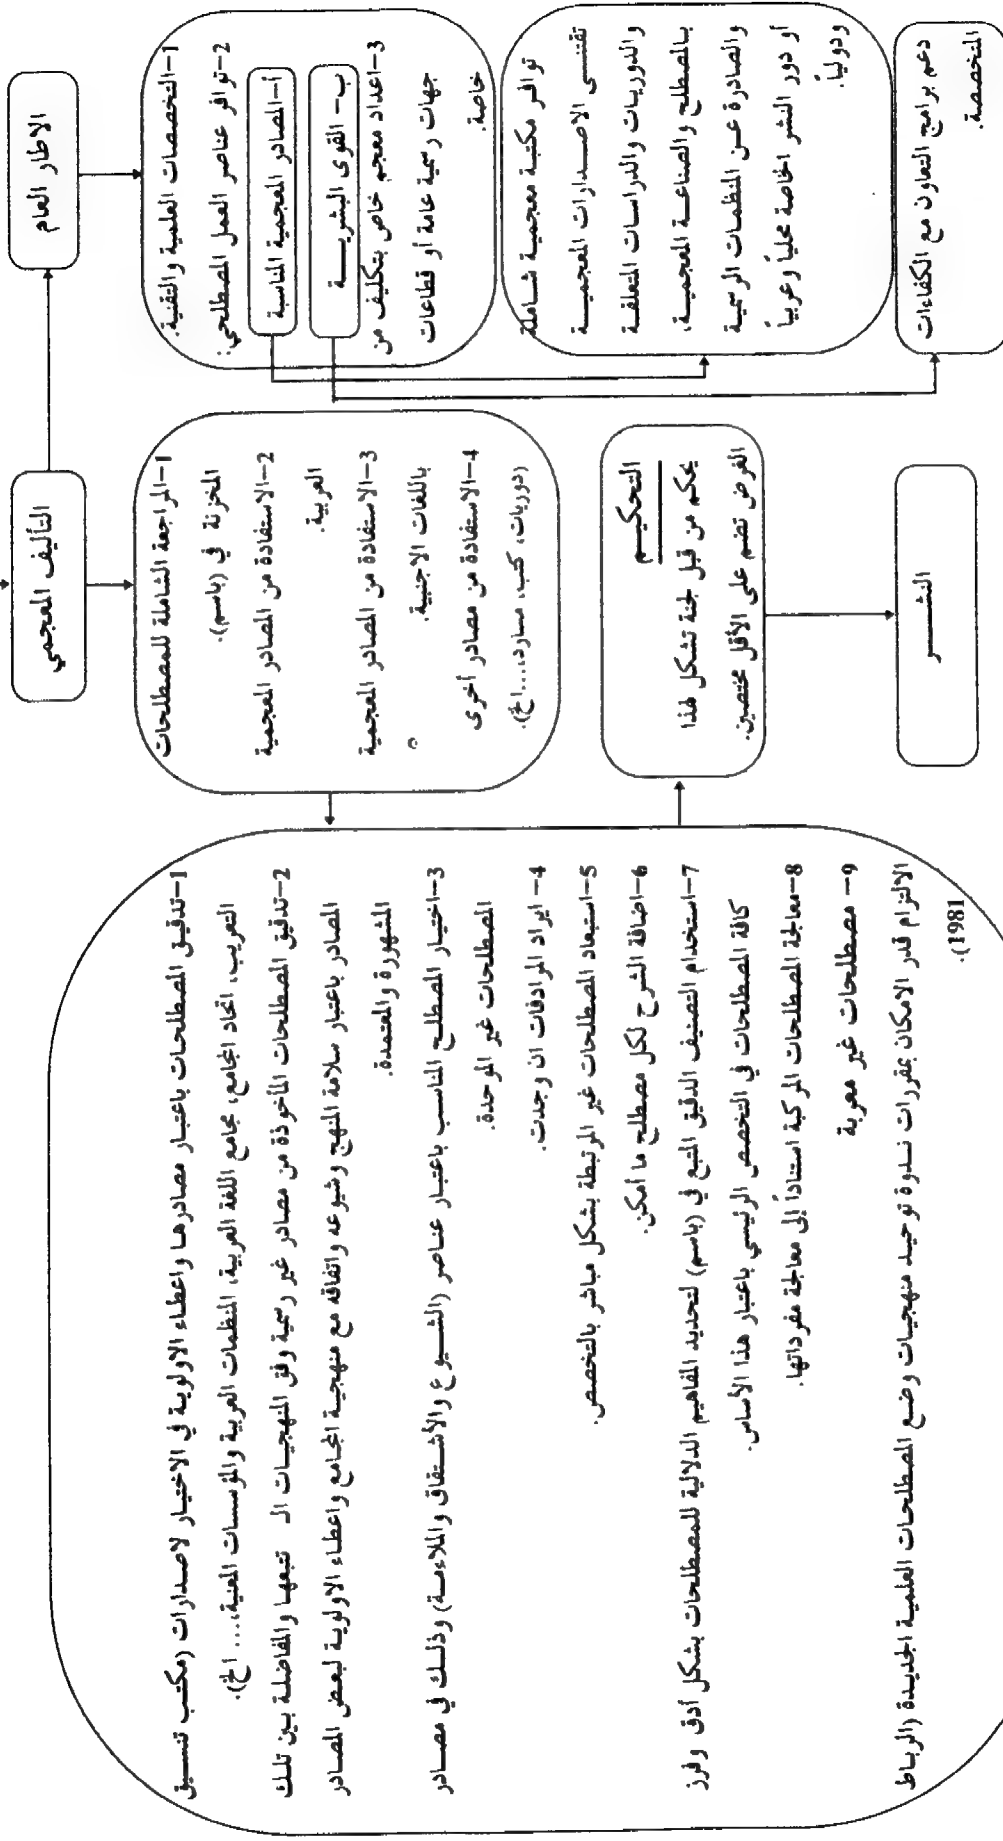 التأليف المعجمي
الاطار العام
1-التخصصات العلمية والتقنية.
2-توافر عناصر العمل المصطلحي:
أ-المصادر المعجمية المناسبة
ب- القوى البشريــــة
3-اعداد معجم خاص بتكليف من
جهات رسمية عامة أو قطاعات
خاصة.
توافر مكتبة معجمية شاملة
تقتنــى الاصــدارات المعجميــة
والدوريات والدراسات المتعلقــة
بـالمصطلح والصناعــة المعجميــة،
والصادرة عــن المنظمــات الرسمية
أو دور النشر الخاصة محلياً وعربياً
ودولياً.
دعم برامج التعاون مع الكفاءات
المتخصصة.
1-المراجعة الشاملة للمصطلحات
المخزنة في (باسم).
2-الاستفادة من المصادر المعجمية
العربية.
3-الاستفادة من المصادر المعجمية
باللغات الاجنبية.
4-الاستفادة من مصادر أخرى
(دوريات، كتب، مسارد،...الخ).
1-تدقيق المصطلحات باعتبار مصادرها واعطاء الاولوية في الاختيار لاصـدارات (مكتب تنسـيق
التعريب، اتحاد المجامع، مجامع اللغة العربية، المنظمات العربية والمؤسسات المعنية،...الخ).
2-تدقيق المصطلحات المأخوذة من مصادر غير رسمية وفق المنهجيـات الـ تتبعهـا والمفاضلـة بين تلـك
المصادر باعتبار سلامة المنهج وشيوعه واتفاقه مع منهجية المجامع واعطـاء الاولويـة لبعض المصـادر
المشهورة والمعتمدة.
3-اختيار المصطلـح المناسب باعتبار عنـاصر (الشـيوع والأشـتقاق والملاءمـة) وذلـك في مصـادر
المصطلحات غير الموحدة.
4-ايراد المرادفات ان وجدت.
5-استبعاد المصطلحات غير المرتبطة بشكل مباشر بالتخصص.
6-اضافة الشرح لكل مصطلح ما أمكن.
7-استخدام التصنيف الدقيق المتبع في (باسم) لتحديد المفاهيم الدلالية للمصطلحات بشكل أدق وفرز
كافة المصطلحات في التخصص الرئيسي باعتبار هذا الأساس.
8-معالجة المصطلحات المركبة استناداً إلى معالجة مفرداتها.
9- مصطلحات غير معربة
الالتزام قدر الامكان بمقررات نـدوة توحيـد منهجيـات وضـع المصطلحات العلميـة الجديـدة (الربـاط
1981).
التحكيـــم
يحكم من قبل لجنة تشكل لهذا
الغرض تضم على الأقل مختصين.
النشـــــر